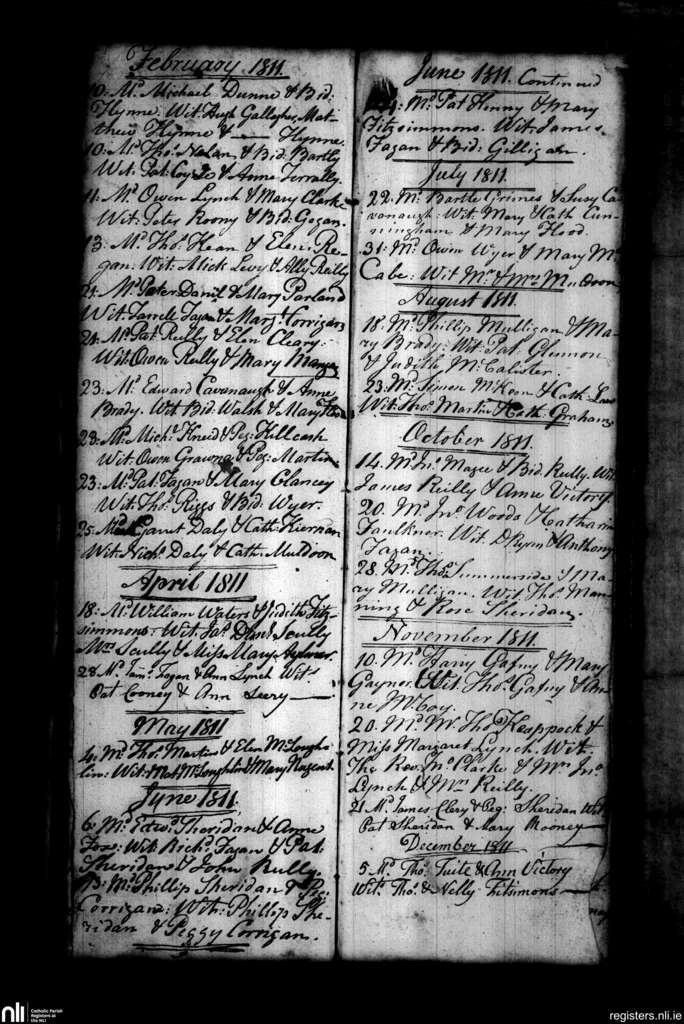 February 1811.
10. Md. Michael Dunne & Bid.
Flynne. Wit. Hugh Gallagher, Mat-
thew Flynne & Flynne.
10. Md. Thos. Nolan, & Bid. Bartly
Wit. Pat. Coyle & Anne
11. Md. Owen Lynch & Mary Clarke
Wit: Peter Roony & Bid: Gogan.
13. Md. Thos. Kean & Elen. Re-
gan. Wit. Mick Levy & Ally Reilly
21. Md. Peter Daniel & Mary Parland
Wit. Farrell Fagan & Margt. Corrigan
21. Md. Pat. Reilly & Elen Cleary:
Wit. Owen Reilly & Mary
23. Md. Edward Cavanaugh & Anne
Brady. Wit. Bid. Walsh & Mary
23. Md. Michl. & Peg: Killcash
Wit. Owen & Peg: Martin
23. Md. Pat. Fagan & Mary Clancey
Wit. Thos. Riggs & Bid. Wyer.
25. Md. Garret Daly & Cath. Kiernan
Wit. Nichs. Daly & Cath. Muldoon
April 1811
18. Md. William Waters & Judith Fitz-
simmons. Wit. Jas. Danl. Scully
Mrs. Scully & Miss Mary Aylmer.
28. Md. Jams. Fagan & Ann Lynch Wits.
Pat Cooney & Ann Leery
May 1811
4. Md. Thos. Martin & Elen McLough-
lin: Wit. Mat. McLoughlin & Mary Nugent
June 1811.
6. Md. Edwd. Sheridan & Anne
Fox: Wit. Richd. Fagan & Pat.
Sheridan & John Reilly.
Md. Phillip Sheridan &
Corrigan: Wit: Phillip She-
ridan & Peggy Corrigan.
June 1811. Continued
Md. Pat Henny & Mary
Fitzsimmons. Wit. James
Fagan & Bid: Gilligan.
July 1811.
22. Md. Bartle Grimes & Susy Ca-
vanaugh. Wit: Mary & Cath Cun-
ningham & Mary Flood.
31. Md. Owen Wyer & Mary Mc.
Cabe: Wit Mr. & Mrs. Muldoon
August 1811.
18. Md. Phillip Mulligan & Ma-
ry Brady: Wit. Pat. Glennon
& Judith McCalister.
23. Md. Simon McKeon & Cath.
Wit. Thos. Martin & Cath. Graham
October 1811.
14. Md. Jno. Magee & Bid. Reilly. Wit.
James Reilly & Anne Victory
20. Md. Jno. Woods & Catharin
Faulkner. Wit. D. Ryan & Anthony
Fagan.
28. Md. Thos. Summersides & Ma-
ry Mulligan. Wit. Thos. Man-
ning & Rose Sheridan.
November 1811.
10. Md. Harry Gafny & Mary
Gaynor. Wit. Thos. Gafny & An-
ne McCoy.
20. Md. Mr. Thos. Keappock &
Miss Margaret Lynch. Wit.
The Rev. Mr. Clarke & Mrs. Jno.
Lynch & Mrs. Reilly.
21. Md. James Clery & Peg: Sheridan Wit.
Pat Sheridan & Mary Rooney
December 1811
5. Md. Thos. Tuite & Ann Victory
Wit. Thos. & Nelly Fitsimons
nli
Catholic Parish
Registers at
the NLI
registers.nli.ie